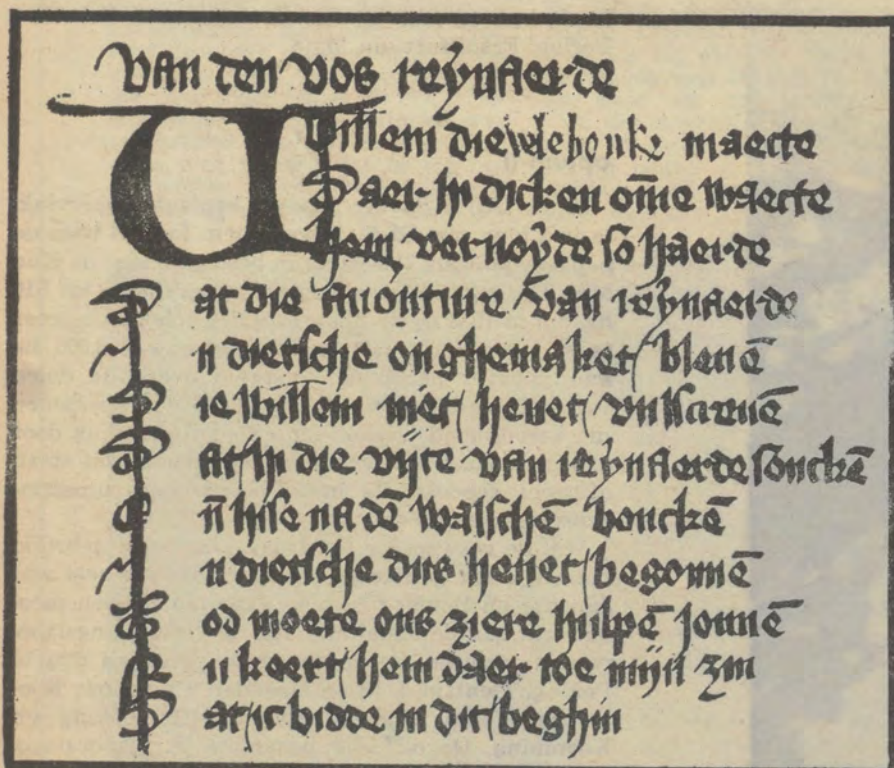 Van den vos reynaerde
Willem die vele bouke maecte
Daer hi dicken om̄e waecte
Hem vernoyde so haerde
Dat die auonture van reynaerde
In dietsche onghemaket bleuē
Die willem niet heuet vulscreuē
Dat hi die vijte van reynaerde souckē
En̄ hise na dē walschē bouckē
In dietsche dus heuet begonnē
God moete ons ziere hulpē jonnē
Nu keert hem daer toe mijn zin
Dat ic bidde in dit beghin